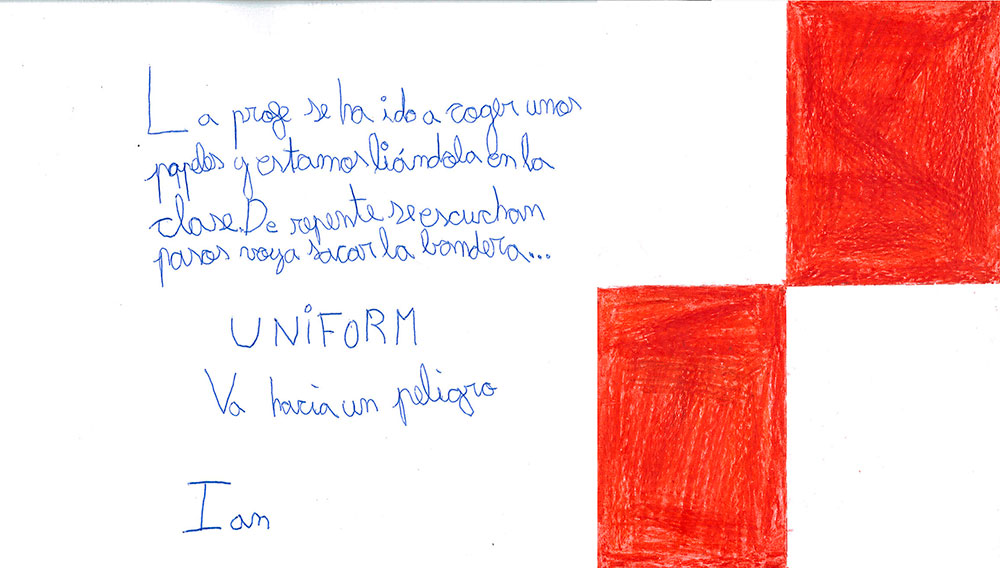 La profe se ha ido a coger unos
papeles y estamos liándola en la
clase. De repente se escuchan
pasos voy a sacar la bandera...
UNiFORM
Va hacia un peligro
Ian